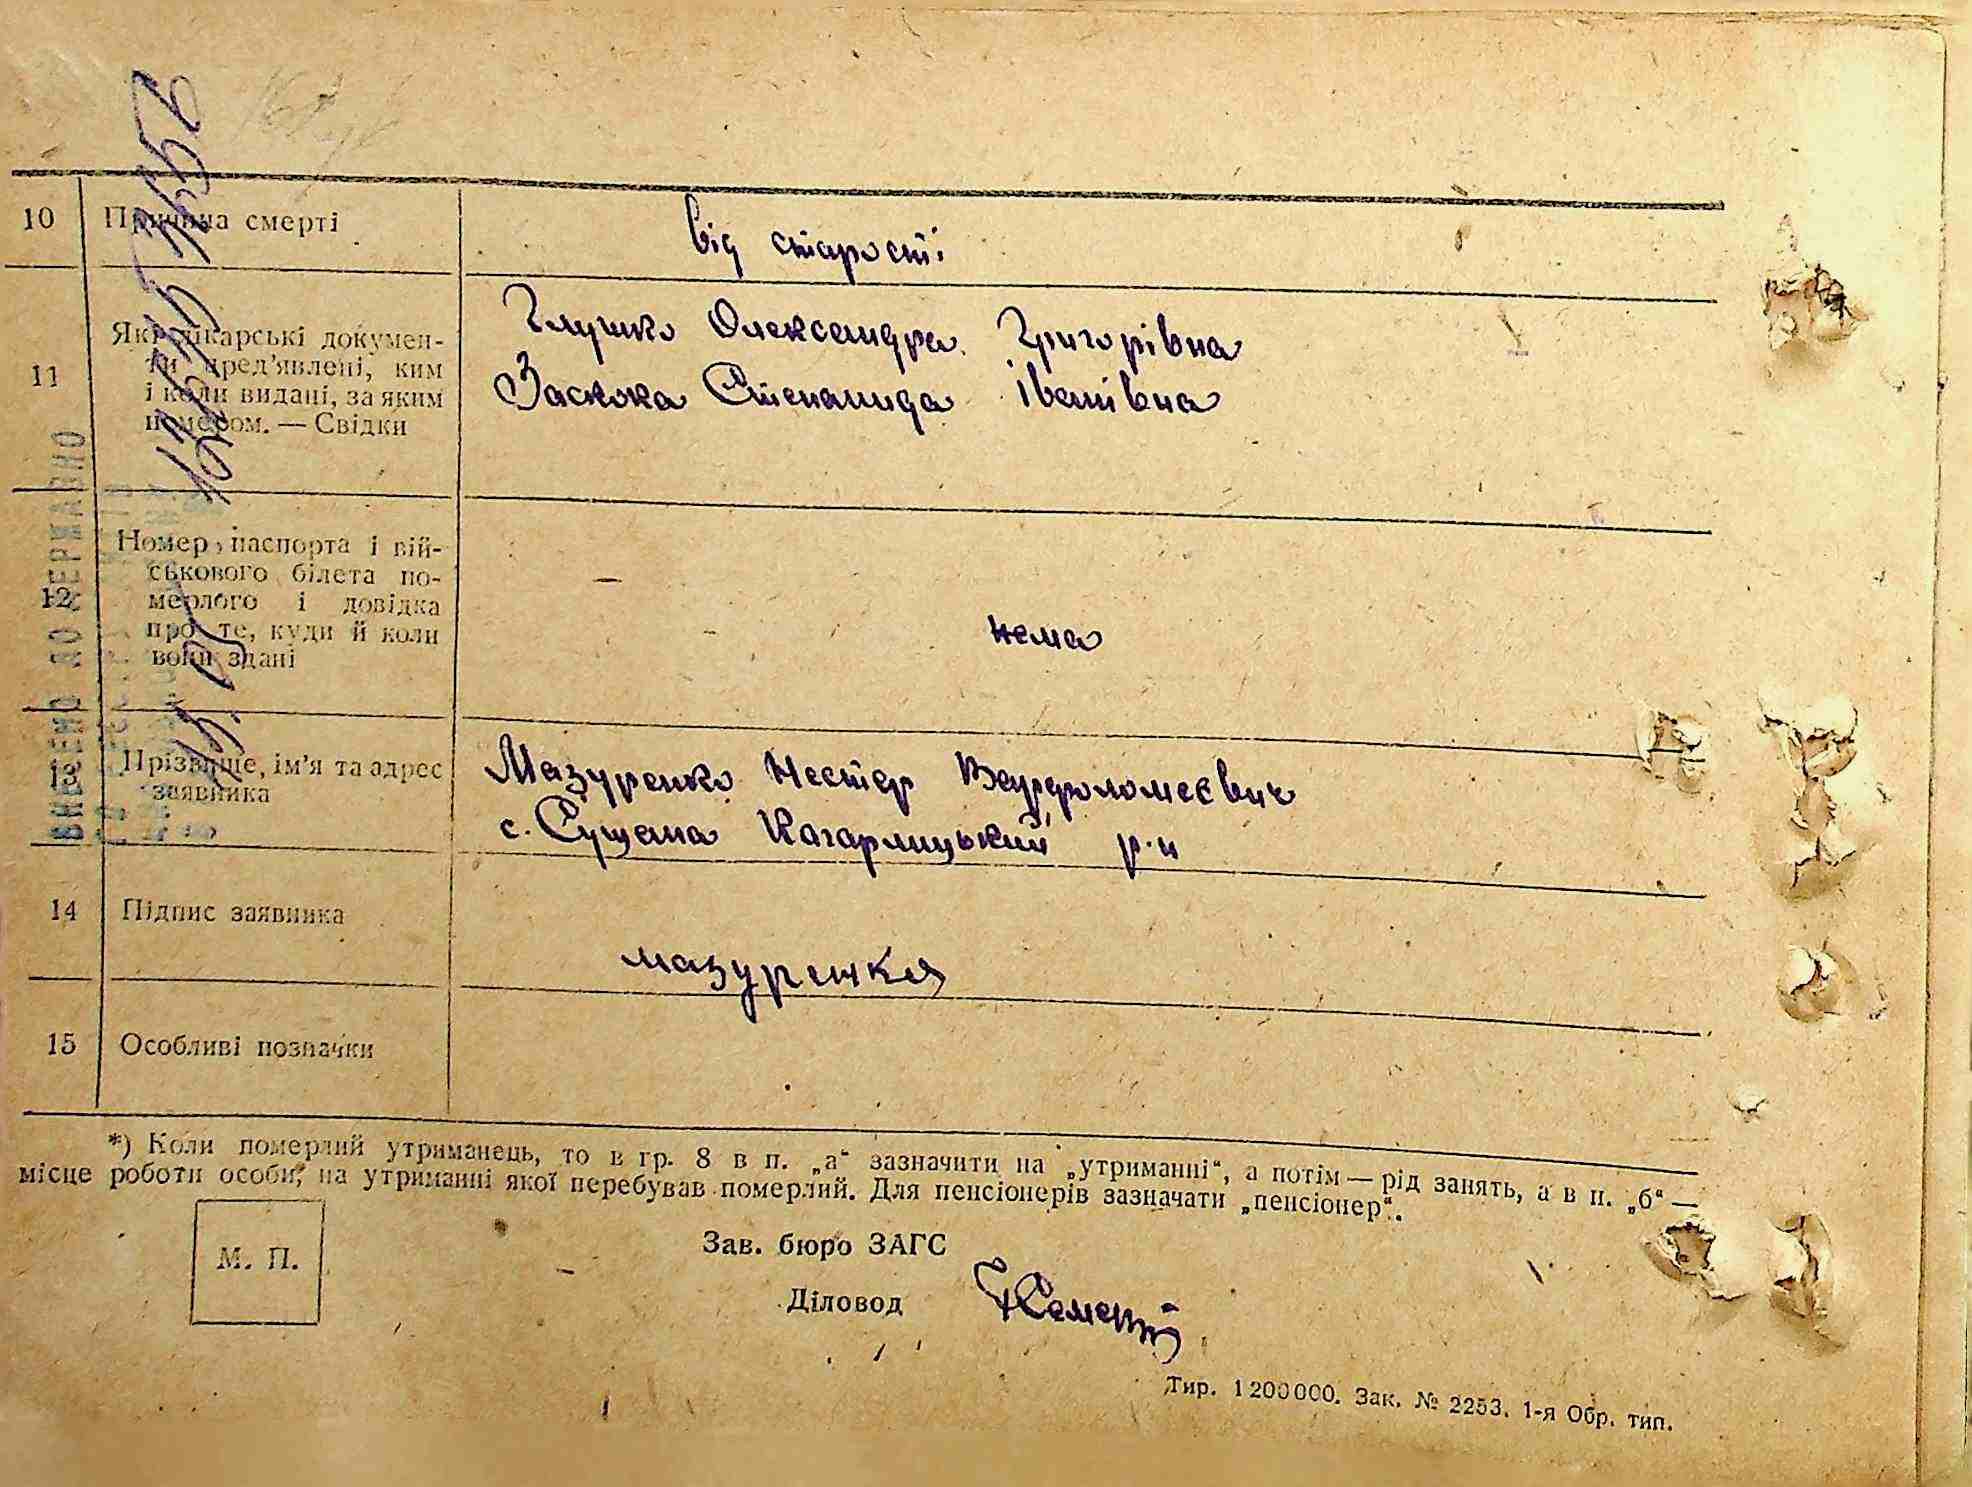 10 Причина смерті від старості
11 Які лікарські докумен-
ти пред'явлені, ким
і коли видані, за яким
номером. — Свідки
Глушко Олександра Григорівна
Заскока Степанида Іванівна
12 Номер паспорта і вій-
ськового білета по-
мерлого і довідка
про те, куди й коли
вони здані
нема
13 Прізвище, ім'я та адрес
заявника
Мазуренко Нестер Варфоломеєвич
с. Сущана Кагарлицький р-н
14 Підпис заявника
мазуренко
15 Особливі позначки
*) Коли померлий утриманець, то в гр. 8 в п. „а“ зазначити на „утриманні“, а потім — рід занять, а в п. „б“ —
місце роботи особи, на утриманні якої перебував померлий. Для пенсіонерів зазначати „пенсіонер“.
М. П.
Зав. бюро ЗАГС
Діловод
Тир. 1200000. Зак. № 2253. 1-я Обр. тип.
ВНЕСЕНО ДО ДЕРЖАВНО